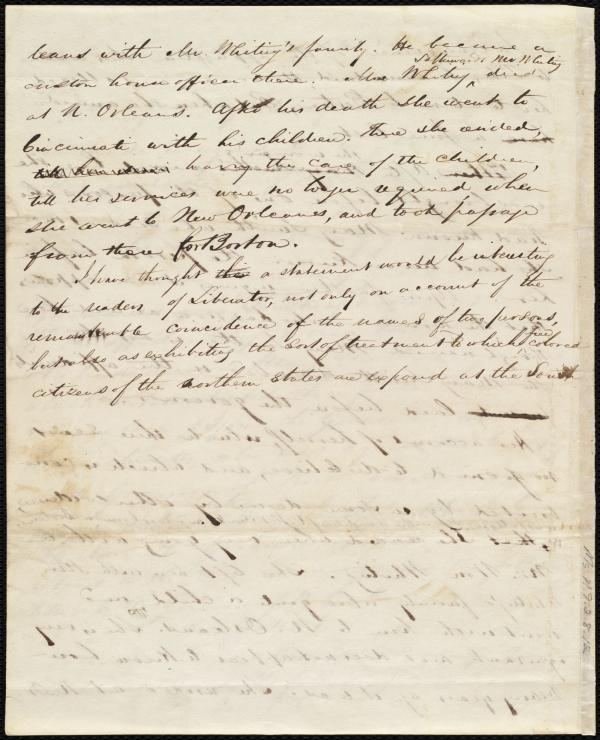 leans with Mr. Whiting's family. He became a
custom house officer there. Mr. Whiting died
at N. Orleans. After his death she went to
Cincinnati with his children. There she resided,
having the care of the children,
till her services were no longer required, when
she went to New Orleans, and took passage
from there for Boston.
I have thought this a statement would be interesting
to the readers of Liberator, not only on account of the
remarkable coincidence of the names of two persons,
but also as exhibiting the sort of treatment to which free colored
citizens of the northern states are exposed at the South